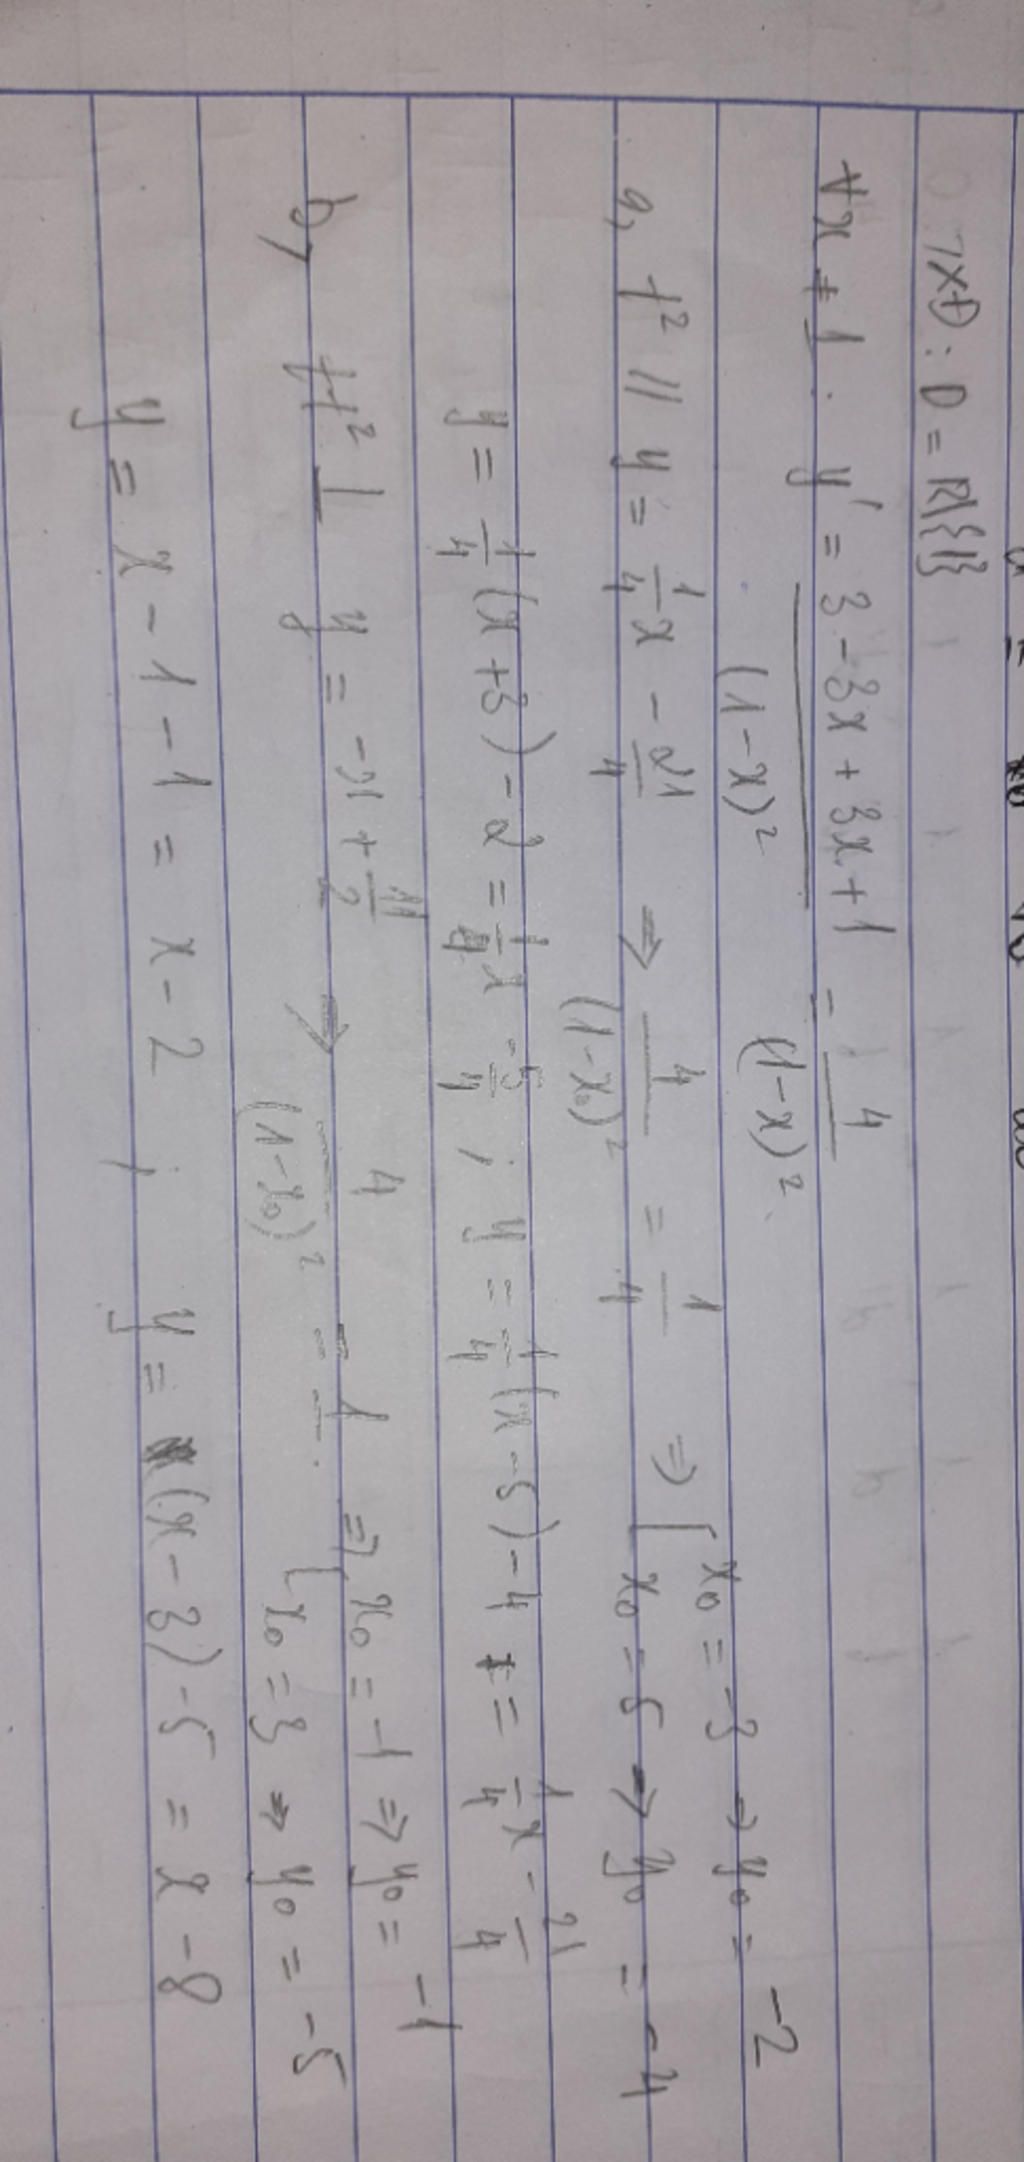 TXĐ: D = R\{1}
∀x ≠ 1. y' = (3 - 3x + 3x + 1)/(1 - x)² = 4/(1 - x)²
a, t² // y = 1/4 x - 21/4 ⇒ 4/(1 - x₀)² = 1/4 ⇒ [ x₀ = -3 ⇒ y₀ = -2
x₀ = 5 → y₀ = -4
y = 1/4 (x + 3) - 2 = 1/4 x - 5/4 ; y = 1/4 (x - 5) - 4 = 1/4 x - 21/4
b, tt² ⊥ y = -x + 11/2 ⇒ 4/(1 - x₀)² = 1 ⇒ [ x₀ = -1 ⇒ y₀ = -1
x₀ = 3 ⇒ y₀ = -5
y = x - 1 - 1 = x - 2 ; y = (x - 3) - 5 = x - 8